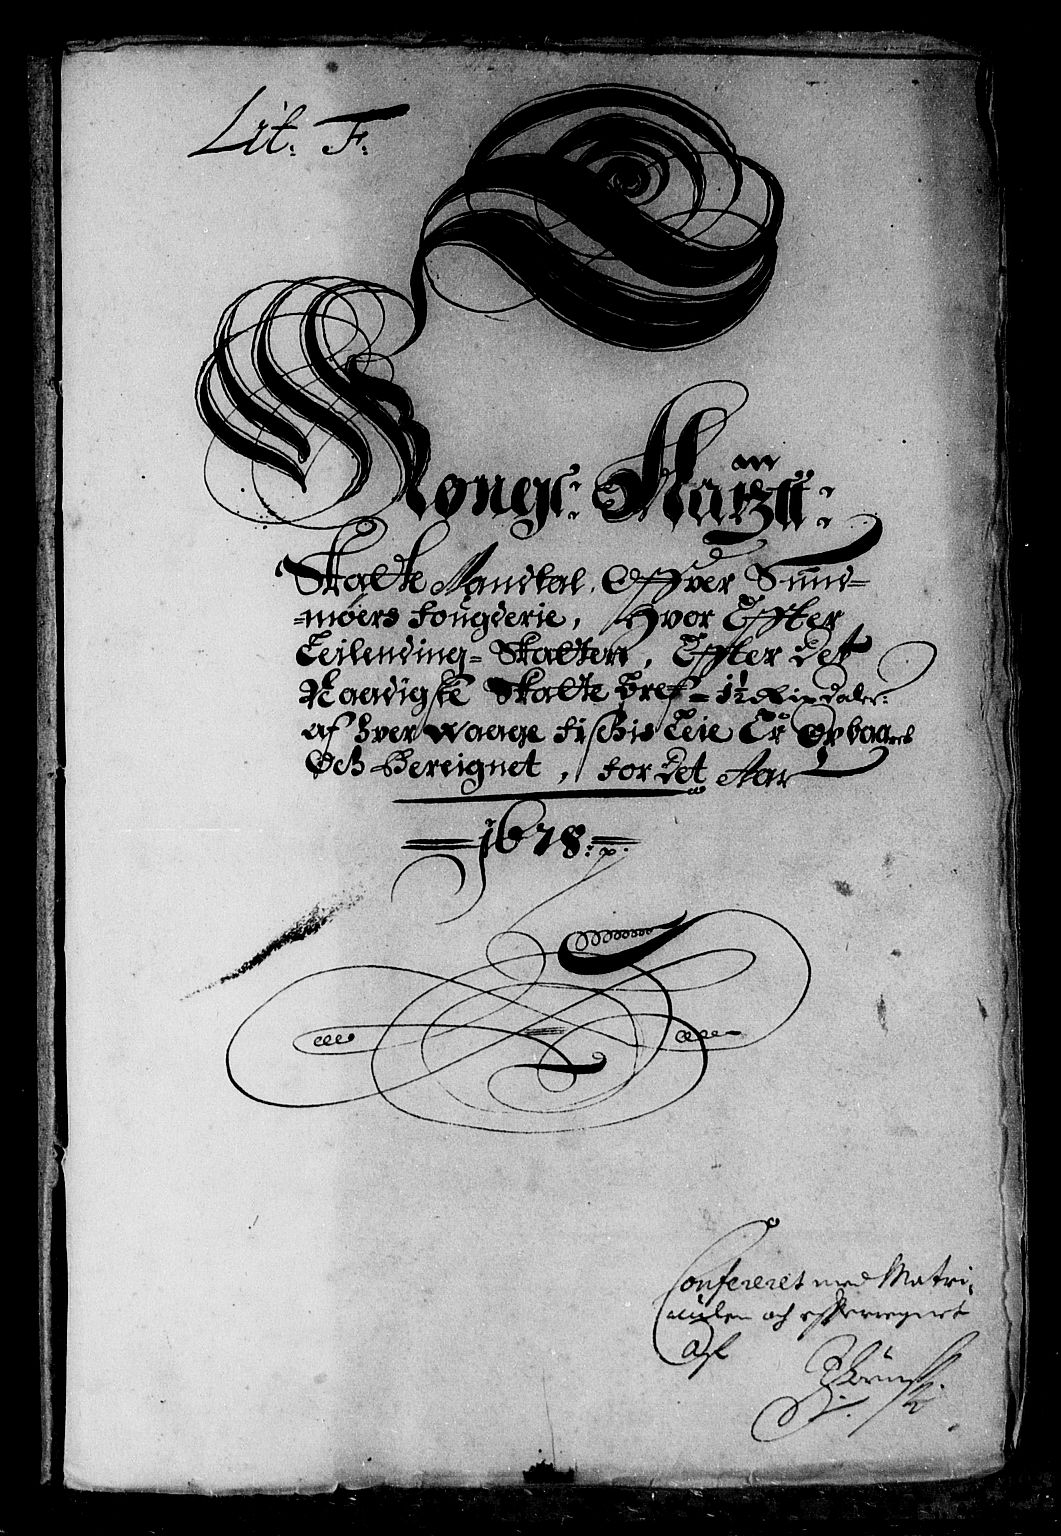 Lit: F:
Kongl: Maÿtz:
Skatte Mandtal, Offver Sund=
=møers fougderie, Hvor Effter
Leilending= Skatten, Effter det
Naadigste Skatte Bref = 1½ Rixdaler:
af hver Waage fischis Leie Er Opbaaren
Och Bereignet, for det Aar
1678:
Confereret med Matri:
culen och efterregnet
Af